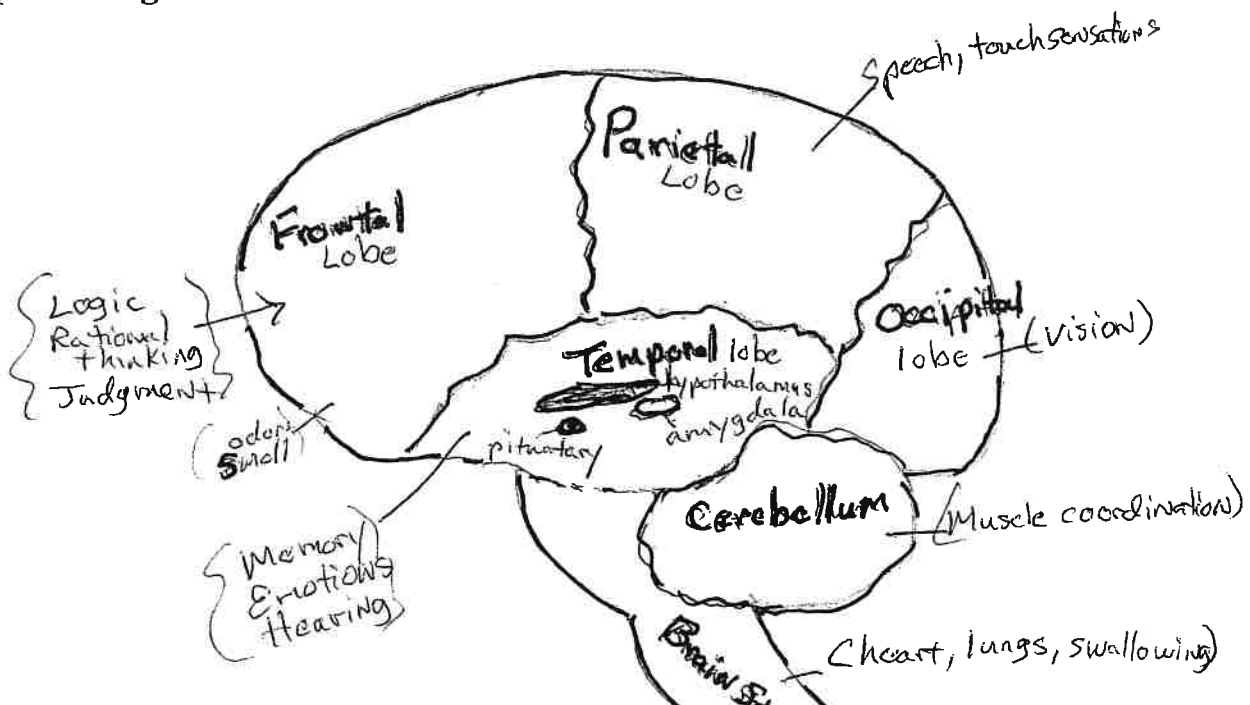 speech, touch sensations
Parietall
Lobe
Frontal
Lobe
Logic
Rational
thinking
Judgment
Occipital
lobe
(vision)
Temporal lobe
hypothalamus
amygdala
pituatary
(odors
Smell)
Cerebellum
(Muscle coordination)
Memory
Emotions
Hearing
Brain
(heart, lungs, swallowing)